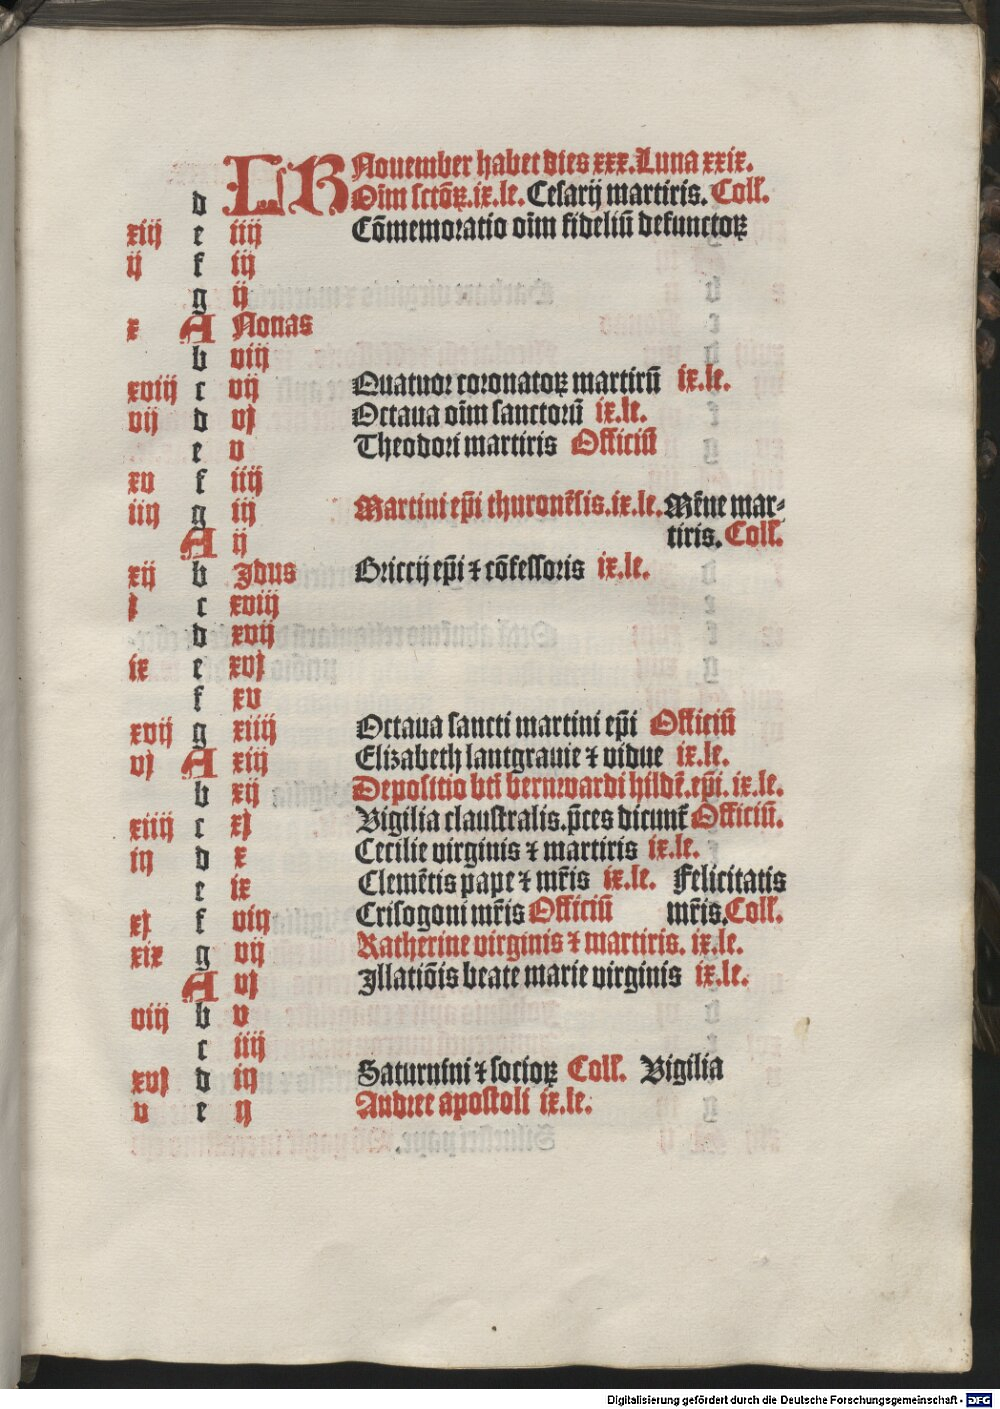 KL November habet dies xxx. Luna xxix.
d Oīm sctōꝝ. ix. le. Cesarij martiris. Coll'.
xiij e iiij Cōmemoratio oīm fideliū defunctoꝝ
ij f iij
g ij
x A Nonas
b viij
xviij c vij Quatuor coronatoꝝ martirū ix. le.
vij d vj Octaua oīm sanctorū ix. le.
e v Theodori martiris Officiū
xv f iiij
iiij g iij Martini ep̄i thuronēsis. ix. le. Mēne mar-
A ij tiris. Coll'.
xij b Idus Briccij ep̄i ⁊ cōfessoris ix. le.
j c xviij
d xvij
ix e xvj
f xv
xvij g xiiij Octaua sancti martini ep̄i Officiū
vj A xiij Elizabeth lantgrauie ⁊ vidue ix. le.
b xij Depositio bti bernwardi hildē. ep̄i. ix. le.
xiiij c xj Vigilia claustralis. p̄ces dicunt̄ Officiū.
iij d x Cecilie virginis ⁊ martiris ix. le.
e ix Clemētis pape ⁊ mr̄is ix. le. Felicitatis
xj f viij Crisogoni mr̄is Officiū mr̄is. Coll'.
xix g vij Katherine virginis ⁊ martiris. ix. le.
A vj Illatiōis beate marie virginis ix. le.
viij b v
c iiij
xvj d iij Saturnini ⁊ socioꝝ Coll'. Vigilia
v e ij Andree apostoli ix. le.
Digitalisierung gefördert durch die Deutsche Forschungsgemeinschaft - DFG